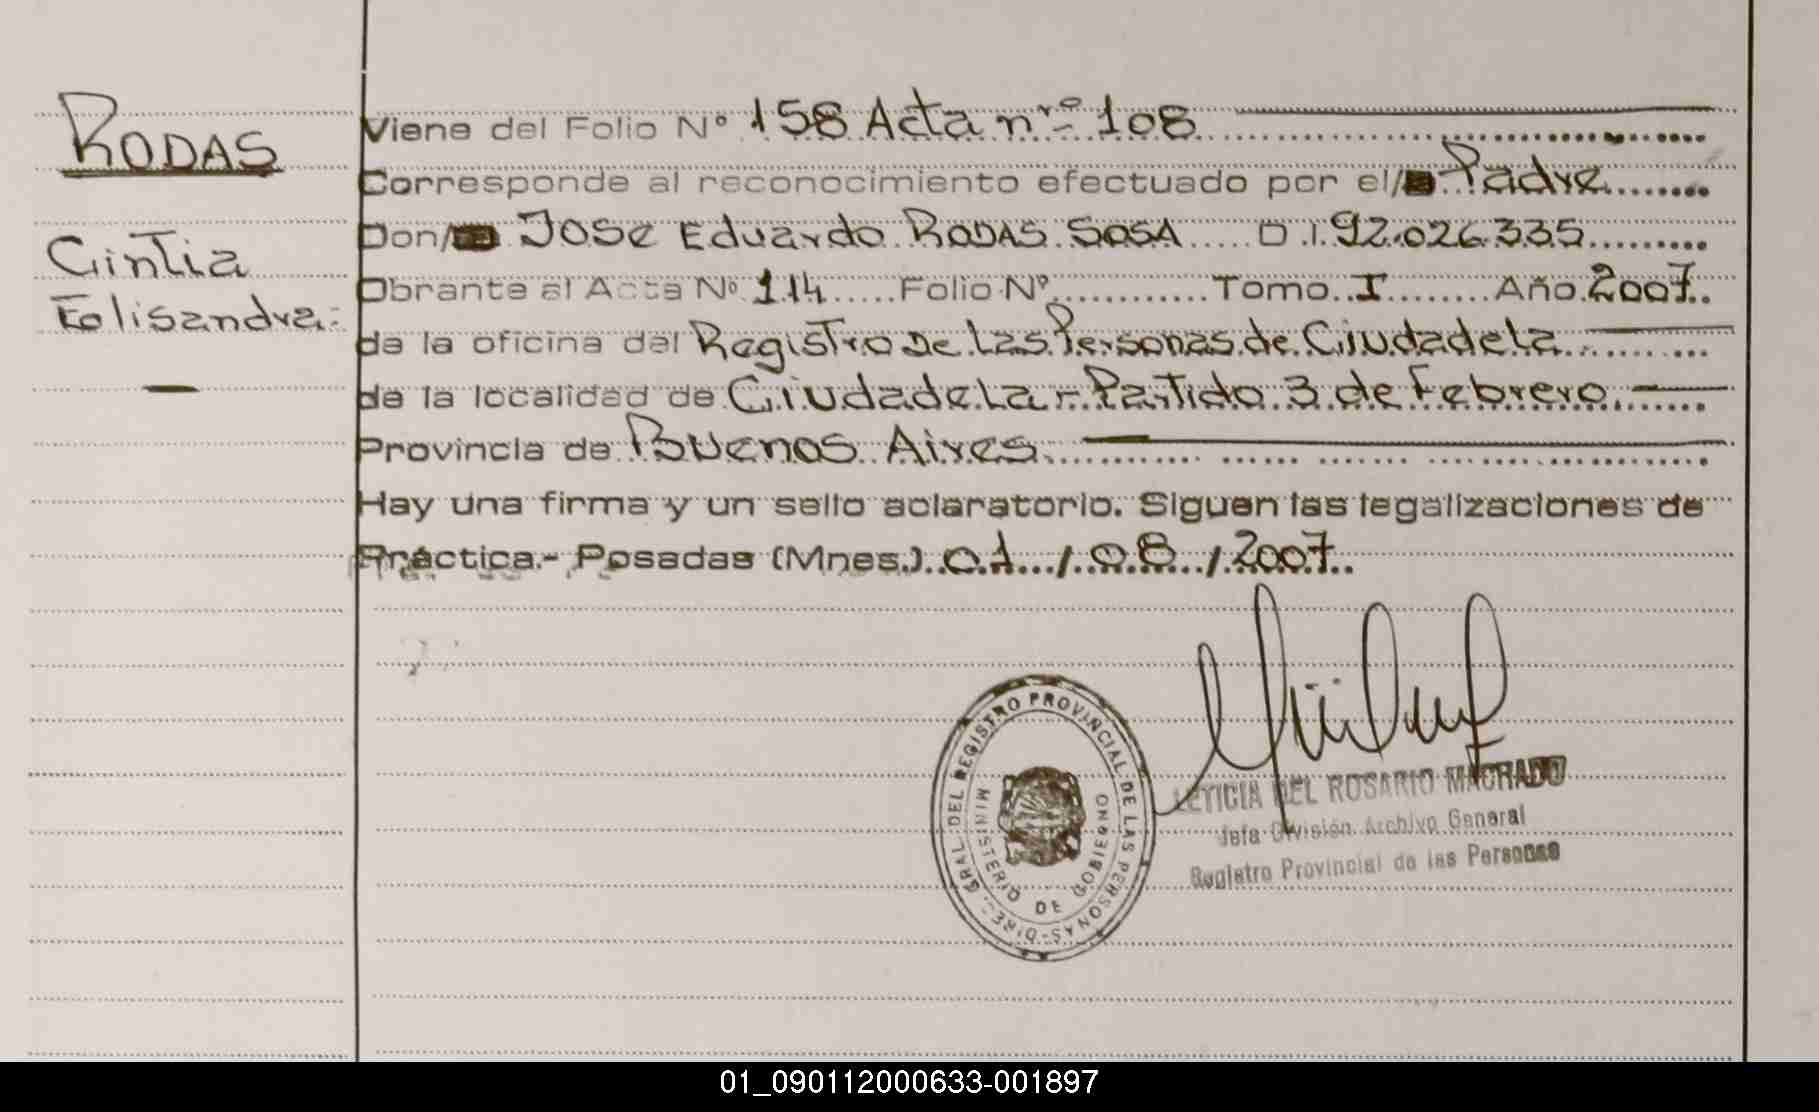 RODAS
Cintia
Folisandra.-
Viene del Folio Nº 158 Acta nrº 108
Corresponde al reconocimiento efectuado por el/ Padre
Don/ Jose Eduardo RODAS SOSA D.I. 92.026.335
Obrante al Acta Nº 114 Folio Nº Tomo I Año 2007
de la oficina del Registro De Las Personas de Ciudadela
de la localidad de Ciudadela - Partido 3 de Febrero
Provincia de Buenos Aires
Hay una firma y un sello aclaratorio. Siguen las legalizaciones de
Práctica.- Posadas (Mnes.) 01 / 08 / 2007
DIREC. GRAL. DEL REGISTRO PROVINCIAL DE LAS PERSONAS
MINISTERIO DE GOBIERNO
LETICIA DEL ROSARIO MACHADO
Jefa División Archivo General
Registro Provincial de las Personas
01_090112000633-001897